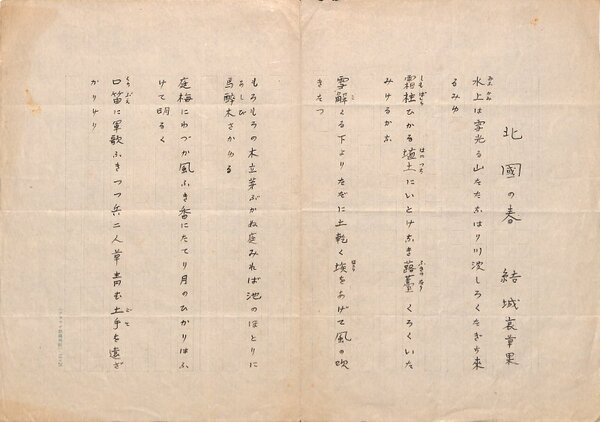 北國の春　結城哀草果
水上は雪光る山たたなはり川波しろくたぎち来
るみゆ
しもばしら　はにつち　ふきのたう
霜柱ひかる埴土にいとけなき蕗薹くろくいた
みけるかな
ほこり
雪解くる下よりただに土乾く埃をあげて風の吹
きたつ
もろもろの木立芽ぶかね庭みれば池のほとりに
あしび
馬酔木さかれる
庭梅にわづか風ふき香にたてり月のひかりはふ
けて明るく
くちぶえ　どて
口笛に軍歌ふきつつ兵二人草青む土手を遠ざ
かりけり